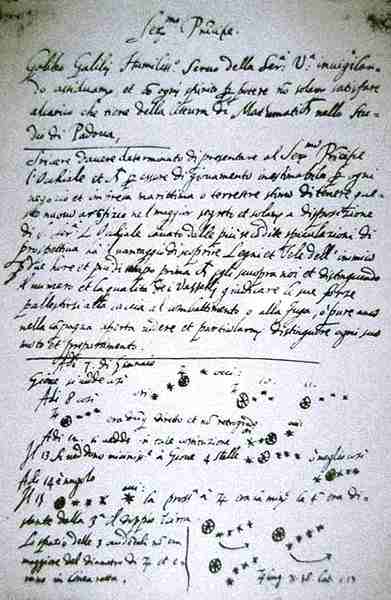 Ser.mo Principe.
Galileo Galilej Humiliss.o Servo della Ser.a V.a invigilan-
do assiduamente, et con ogni spirito per potere non solam satisfare
al carico che tiene della lettura di Mathematiche nello Stu-
dio di Padova,
Scrivere d'avere determinato di presentare al Ser.mo Principe
l'Occhiale et per essere di giovamento inestimabile per ogni
negozio et impresa marittima o terrestre stimo di tenere que-
sto nuovo artifizio nel maggior segreto et solam a disposizione
di S. Ser.a L'Occhiale cavato dalle più recondite speculazioni di
prospettiva ha il vantaggio di scoprire Legni et Vele dell'inimico
per due hore et più di tempo prima ch'egli scuopra noi et distinguendo
il numero et la qualità de Vasselli giudicare le sue forze
pallestirsi alla caccia al combattimento o alla fuga, o pure anco
nella capagna aperta vedere et particolarm distinguere ogni suo
moto et preparamento.
Adi 7. di Gennaio
Giove si vede così
Adi 8 così
era direto et non retrogrado
Adi 12 si vedde in tale costituzione
Il 13 si veddono vicinissime a Giove 4 stelle
Adi 14 è nugolo
Il 15 la pross.a a era la min.e la 4.a era di-
stante dalla 3.a il doppio
Lo spazio delle 3 occidentali non era
maggiore del diametro di et e-
rano in linea retta.